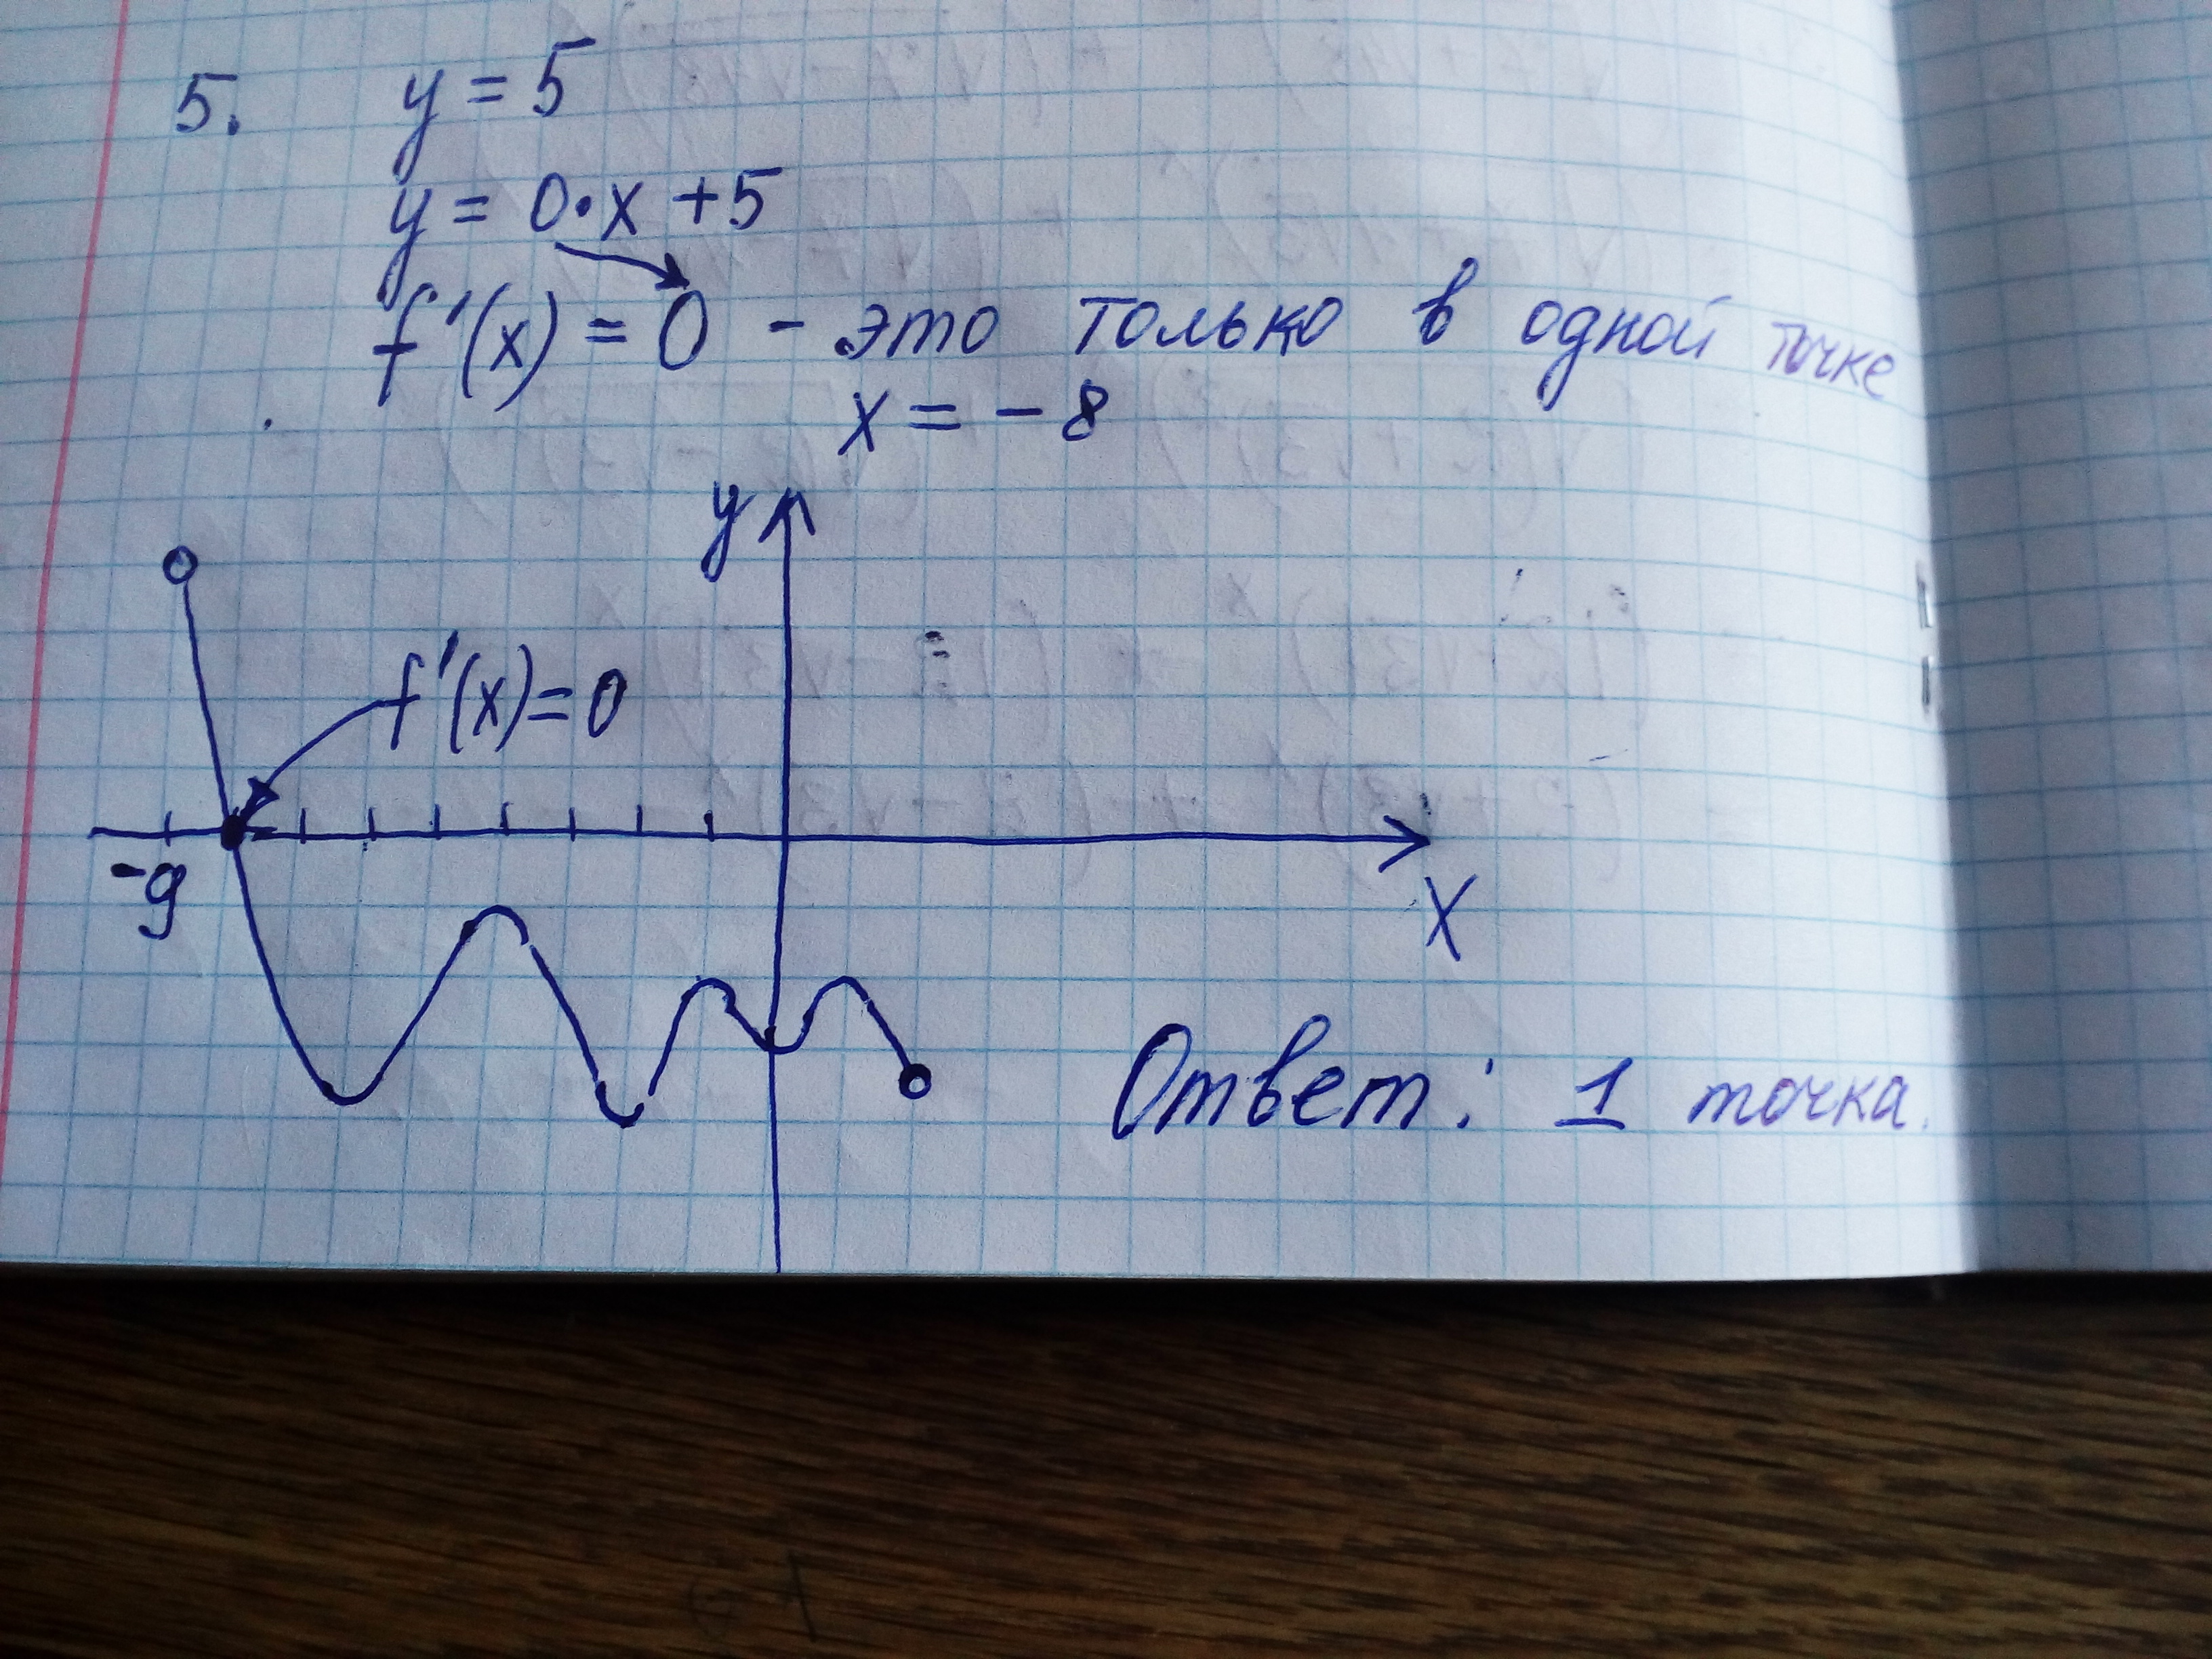 5. y = 5
y = 0·x + 5
f'(x) = 0 - это только в одной точке
x = -8
y
f'(x) = 0
-9
x
Ответ: 1 точка.